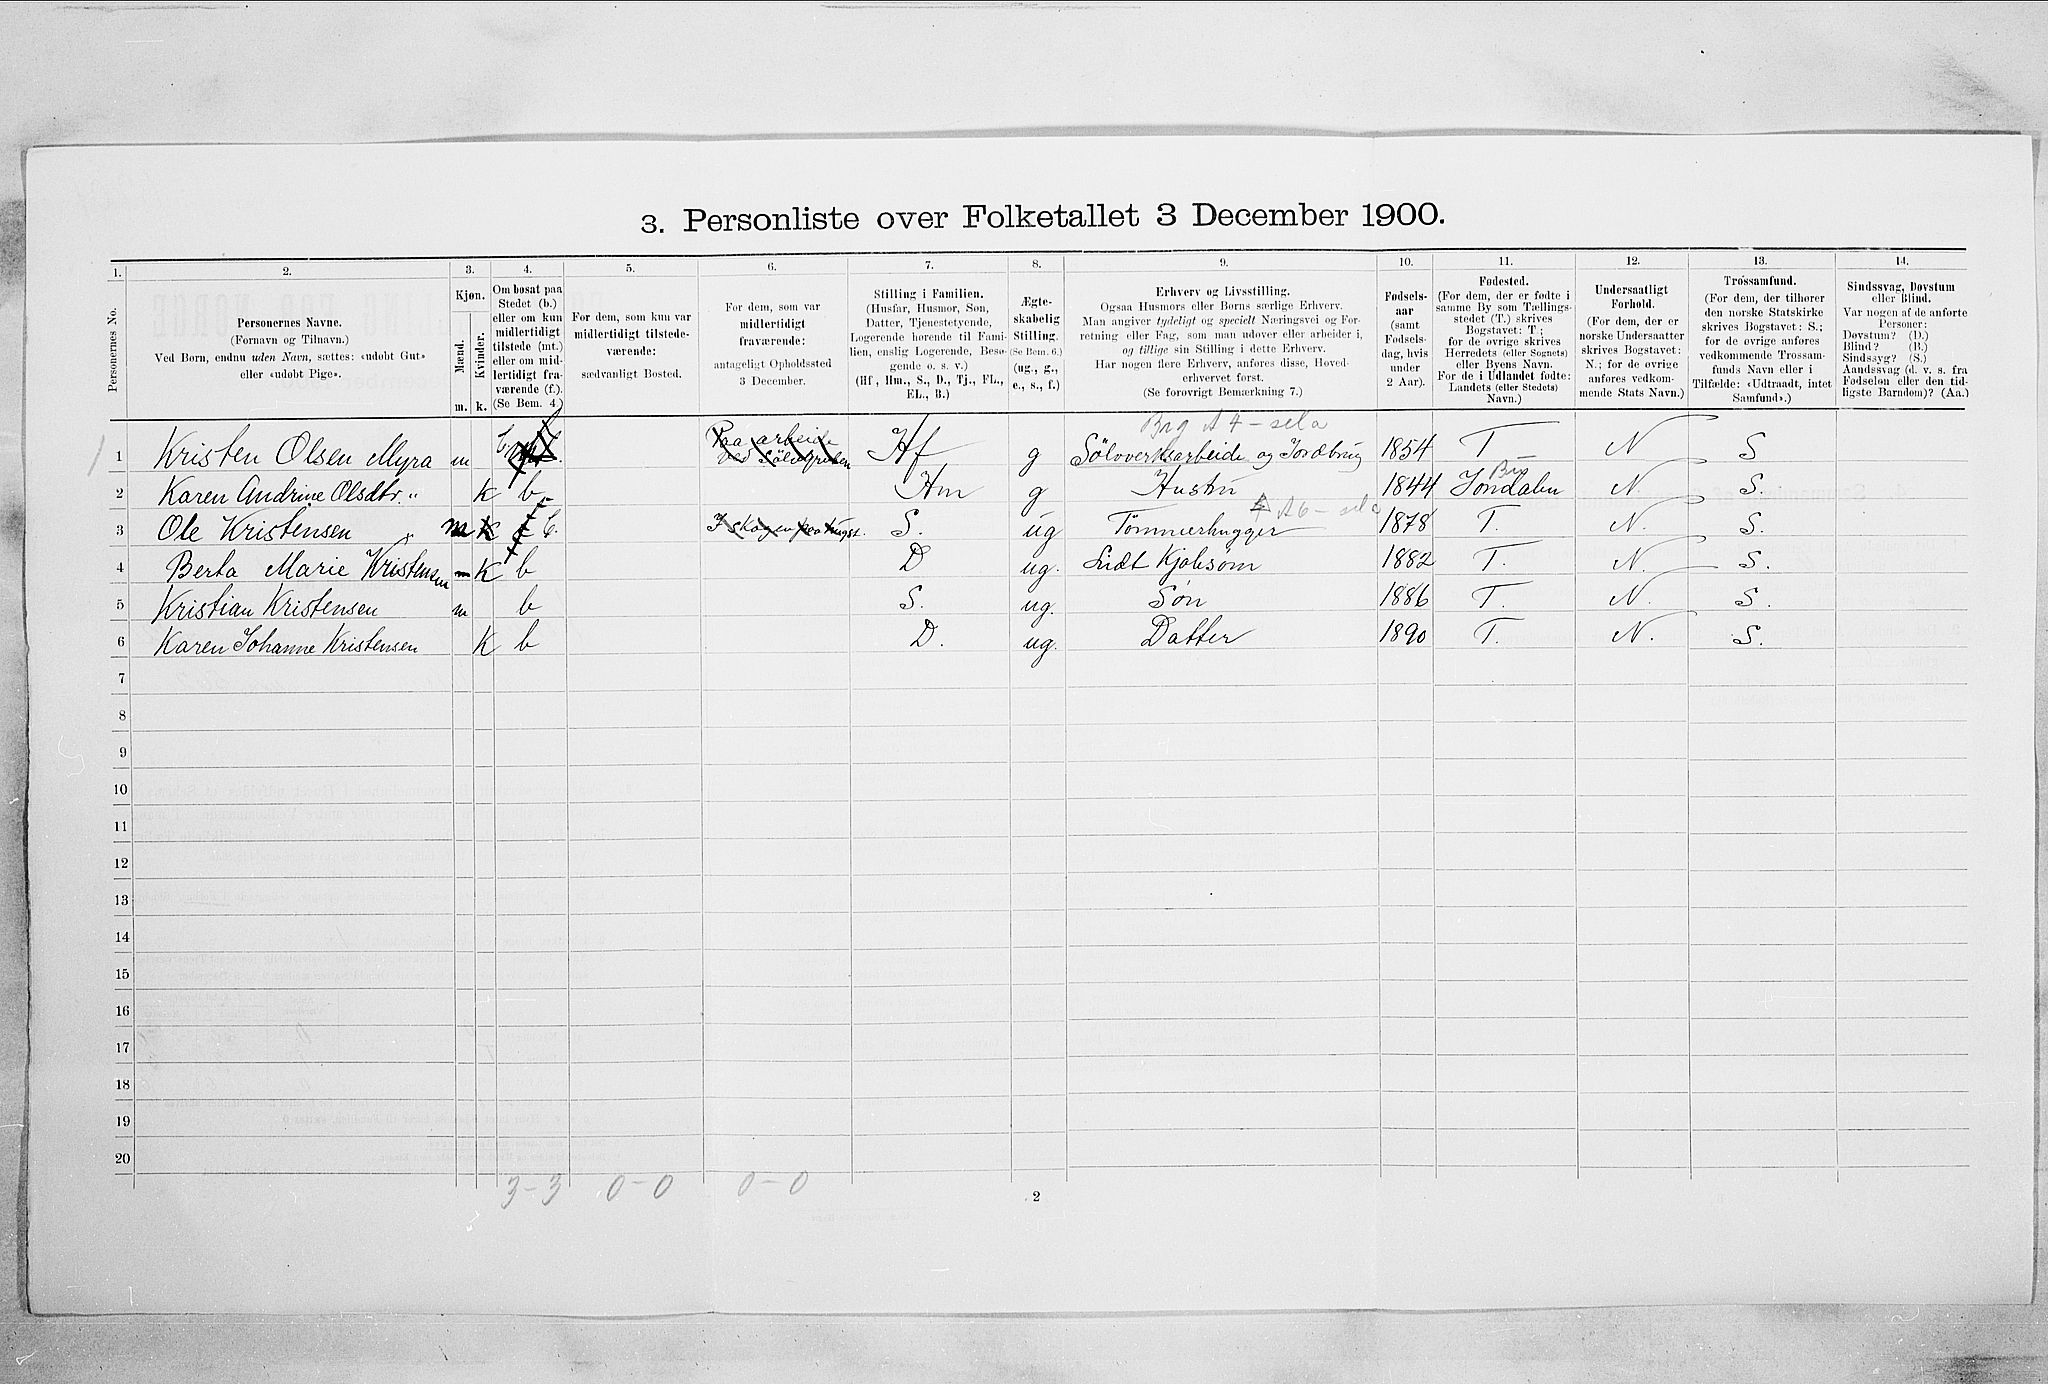 3. Personliste over Folketallet 3 December 1900.
1. 2. 3. 4. 5. 6. 7. 8. 9. 10. 11. 12. 13. 14.
Personernes No.
Personernes Navne.
(Fornavn og Tilnavn.)
Ved Børn, endnu uden Navn, sættes: «udøbt Gut»
eller «udøbt Pige».
Kjøn.
Mænd.
Kvinder.
m. k.
Om bosat paa
Stedet (b.)
eller om kun
midlertidigt
tilstede (mt.)
eller om mid-
lertidigt fra-
værende (f.).
(Se Bem. 4.)
For dem, som kun var
midlertidigt tilstede-
værende:
sædvanligt Bosted.
For dem, som var
midlertidigt
fraværende:
antageligt Opholdssted
3 December.
Stilling i Familien.
(Husfar, Husmor, Søn,
Datter, Tjenestetyende,
Logerende hørende til Fami-
lien, enslig Logerende, Besø-
gende o. s. v.)
(Hf., Hm., S., D., Tj., FL.,
EL., B.)
Ægte-
skabelig
Stilling.
(Se Bem. 6.)
(ug., g.,
e., s., f.)
Erhverv og Livsstilling.
Ogsaa Husmors eller Børns særlige Erhverv.
Man angiver tydeligt og specielt Næringsvei og For-
retning eller Fag, som man udøver eller arbeider i,
og tillige sin Stilling i dette Erhverv.
Har nogen flere Erhverv, anføres disse, Hoved-
erhvervet først.
(Se forøvrigt Bemærkning 7.)
Fødsels-
aar
(samt
Fødsels-
dag, hvis
under
2 Aar).
Fødested.
(For dem, der er fødte i
samme By som Tællings-
stedet (T.) skrives
Bogstavet: T.;
for de øvrige skrives
Herredets (eller Sognets)
eller Byens Navn.
For de i Udlandet fødte:
Landets (eller Stedets)
Navn.)
Undersaatligt
Forhold.
(For dem, der er
norske Undersaatter
skrives Bogstavet:
N.; for de øvrige
anføres vedkom-
mende Stats Navn.)
Trossamfund.
(For dem, der tilhører
den norske Statskirke
skrives Bogstavet: S.;
for de øvrige anføres
vedkommende Trossam-
funds Navn eller i
Tilfælde: «Udtraadt, intet
Samfund».)
Sindssvag, Døvstum
eller Blind.
Var nogen af de anførte
Personer:
Døvstum? (D.)
Blind? (B.)
Sindssyg? (S.)
Aandssvag (d. v. s. fra
Fødselen eller den tid-
ligste Barndom)? (Aa.)
Brg A 4 – sela
1 Kristen Olsen Myra m b. Paa arbeide ved Sølvgruben Hf g Sølvverksarbeide og Jordbrug 1854 T N S
2 Karen Andrine Olsdtr. „ k b. Hm g Hustru 1844 Jondalen N. S.
A 6 – sela
3 Ole Kristensen m k f b. I skogen paa hugst. S. ug Tømmerhugger 1878 T. N. S.
4 Berta Marie Kristensen k b D ug. 1882 T. N. S.
5 Kristian Kristensen m b S. ug. Søn 1886 T. N. S.
6 Karen Johanne Kristensen k b D. ug. Datter 1890 T. N. S.
7
8
9
10
11
12
13
14
15
16
17
18
19
20
3 – 3 0 – 0 0 – 0
2